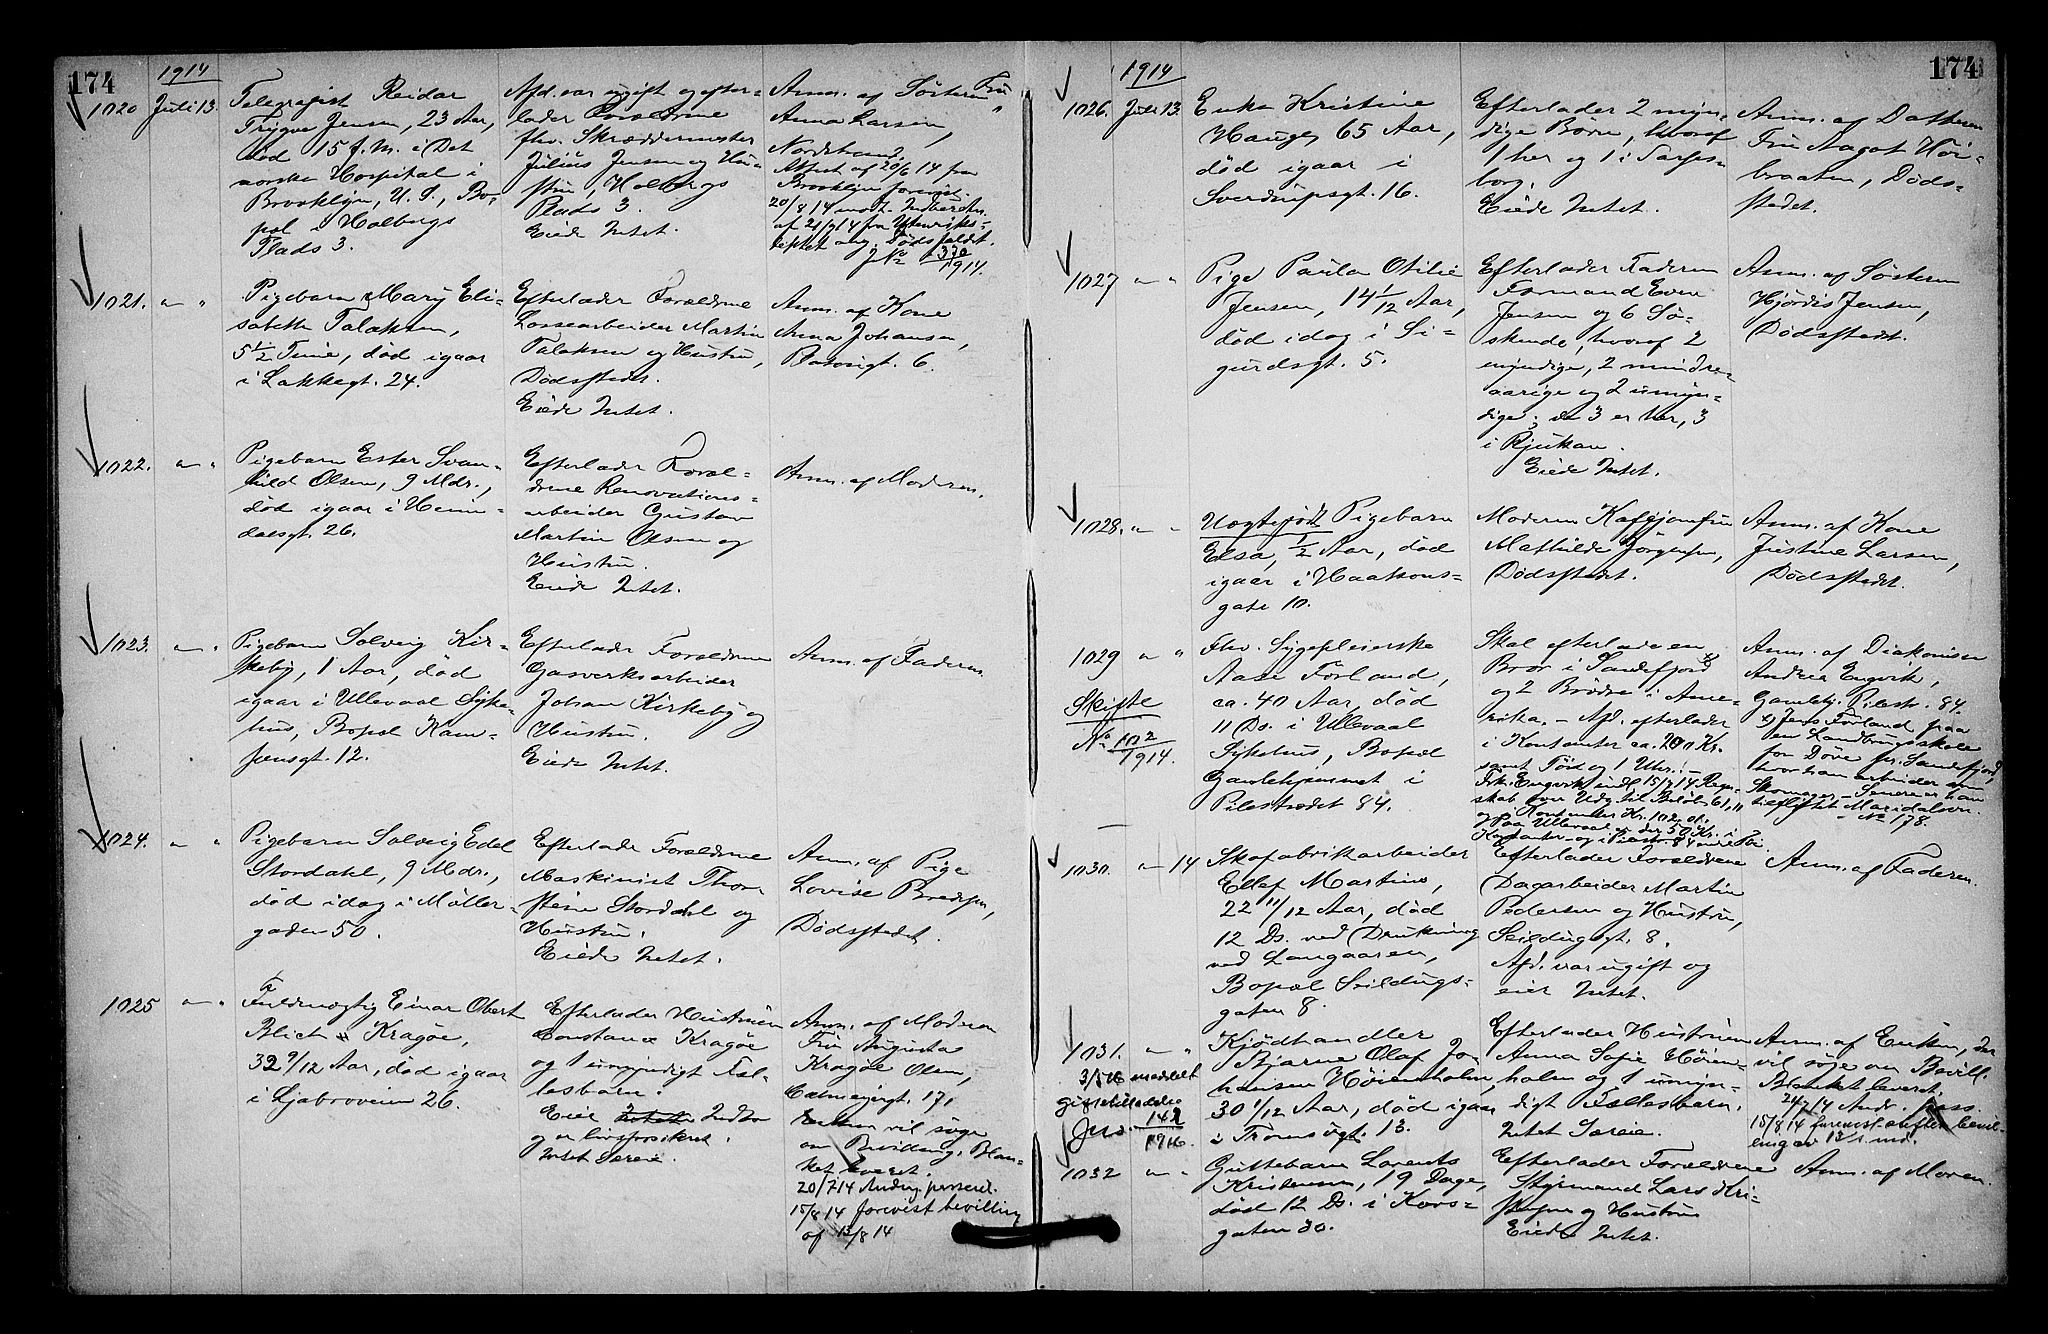 174
1914
1020 Juli 13.
Telegrafist Reidar
Trygve Jensen, 23 Aar,
død 15 f. M. i Det
norske Hospital i
Brooklyn, U. S., Bo-
pæl i Holbergs
Plads 3.
Afd. var ugift og efter-
lader Forældrene
fhv. Skræddermester
Julius Jensen og Hu-
stru, Holbergs
Plads 3.
Eiede Intet.
Anm. af Søsteren Fru
Anna Larsen,
Nordstrand.
Attest af 20/6 14 fra
Brooklyn forevist.
J No 330
1914.
1021. " "
Pigebarn Mary Eli-
sabeth Talaksen,
5 1/2 Time, død igaar
i Lakkegt. 24.
Efterlader Forældrene
Lossearbeider Martin
Talaksen og Hustru,
Dødsstedet.
Eiede Intet.
Anm. af Kone
Anna Johansen,
6.
1022. " "
Pigebarn Ester Svan-
hild Olsen, 9 Mdr.,
død igaar i Heim-
dalsgt. 26.
Efterlader Foræl-
drene Renovations-
arbeider Gustav
Martin Olsen og
Hustru.
Eiede Intet.
Anm. af Moderen.
1023. " "
Pigebarn Solveig Kir-
keby, 1 Aar, død
igaar i Ullevaal Syke-
hus, Bopæl Kam-
pensgt. 12.
Efterlader Forældrene
Gasverksarbeider
Johan Kirkeby og
Hustru.
Eiede Intet.
Anm. af Faderen.
1024. " "
Pigebarn Solveig Edel
Stordahl, 9 Mdr.,
død idag i Møller-
gaden 50.
Efterlader Forældrene
Maskinist Thor-
stein Stordahl og
Hustru.
Eiede Intet.
Anm. af Pige
Lovise Bredesen,
Dødsstedet.
1025 " "
Fuldmægtig Einar Obert
Blich Kragøe,
32 9/12 Aar, død igaar
i Ljabroveien 26.
Efterlader Hustruen
Constance Kragøe
og 1 umyndigt Fæl-
lesbarn.
Eier Indbo
og er livsforsikret.
Intet Særeie.
Anm. af Moderen
Fru Augusta
Kragøe Olsen,
171
Enken vil søge
om Bevilling. Blan-
ket leveret.
20/7 14 Andrag. passeret.
15/8 14 forevist bevilling
af 13/8 14
174
1914
1026. Juli 13.
Enke Kristine
Hauge, 65 Aar,
død igaar i
Sverdrupsgt. 16.
Efterlader 2 myn-
dige Børn, hvoraf
1 her og 1 i Sarps-
borg.
Eiede Intet.
Anm. af Datteren
Fru Aagot Høi-
braaten, Døds-
stedet.
1027 " "
Pige Paula Otilie
Jensen, 14 1/12 Aar,
død idag i Si-
gurdsgt. 5.
Efterlader Faderen
Formand Even
Jensen og 6 Sø-
skende, hvoraf 2
myndige, 2 mindre-
aarige og 2 umyn-
dige; de 3 er her, 3
i Rjukan.
Eiede Intet.
Anm. af Søsteren
Hjørdis Jensen,
Dødsstedet.
1028. " "
Uægtefødt Pigebarn
Elsa, 1/2 Aar, død
igaar i Haakons-
gate 10.
Moderen Kafejomfru
Mathilde Jørgensen,
Dødsstedet.
Anm. af Kone
Justine Larsen,
Dødsstedet.
1029 " "
Skifte
No 102
1914.
Fhv. Sygepleierske
Aase Forland,
ca. 40 Aar, død
11 Ds. i Ullevaal
Sykehus, Bopæl
Gamlehjemmet i
Pilestrædet 84.
Skal efterlade en
Bror i Sandefjord x)
og 2 Brødre i Ame-
rika. - Afd. efterlader
i Kontanter ca. 200 Kr.
samt Tøi og 1 Uhr. -
Frk. Engvik indl. 15/7 14 Regn-
skab over Udg. til Beløb 61,11
og Kontanter Kr. 102,01.
Paa Ullevaal er der 50 Kr. i
Kontanter og i Pilestr. 84
Anm. af Diakonisse
Andrea Engvik,
Gamlehj. Pilestr. 84.
x) Jens Forland paa
en Landbrugsskole
for Døve pr. Sandefjord,
hvor han arbeider som
Skomager. - Senere er han
tilflyttet Maridalsvn.
No 178.
1030. " 14
Skofabrikarbeider
Ellef Martins,
22 11/12 Aar, død
12 Ds. ved Drukning
ved Langaaren,
Bopæl Seildugs-
gaten 8.
Efterlader Forældrene
Dagarbeider Martin
Pedersen og Hustru,
Seildugsgt. 8.
Afd. var ugift og
eier Intet.
Anm. af Faderen.
1031. " "
3/5 16 meddelt
giftetilladelse
Jno. 142
1916.
Kjødhandler
Bjarne Olaf Jo-
hansen Høienholm,
30 1/12 Aar, død igaar
i Tromsøgt. 13.
Efterlader Hustruen
Anna Sofie Høien-
holm og 1 umyn-
digt Fællesbarn.
Intet Særeie.
Anm. af Enken, der
vil søge om Bevill.
Blanket leveret.
24/7 14 Andr. pass.
15/8 14 forevist skifte bevil-
ling av 13 s. md.
1032 " "
Guttebarn Lorents
Kristensen, 19 Dage,
død 12 Ds. i Kors-
gaten 30.
Efterlader Forældrene
Styrmand Lars Kri-
stensen og Hustru
Eiede Intet.
Anm. af Moren.